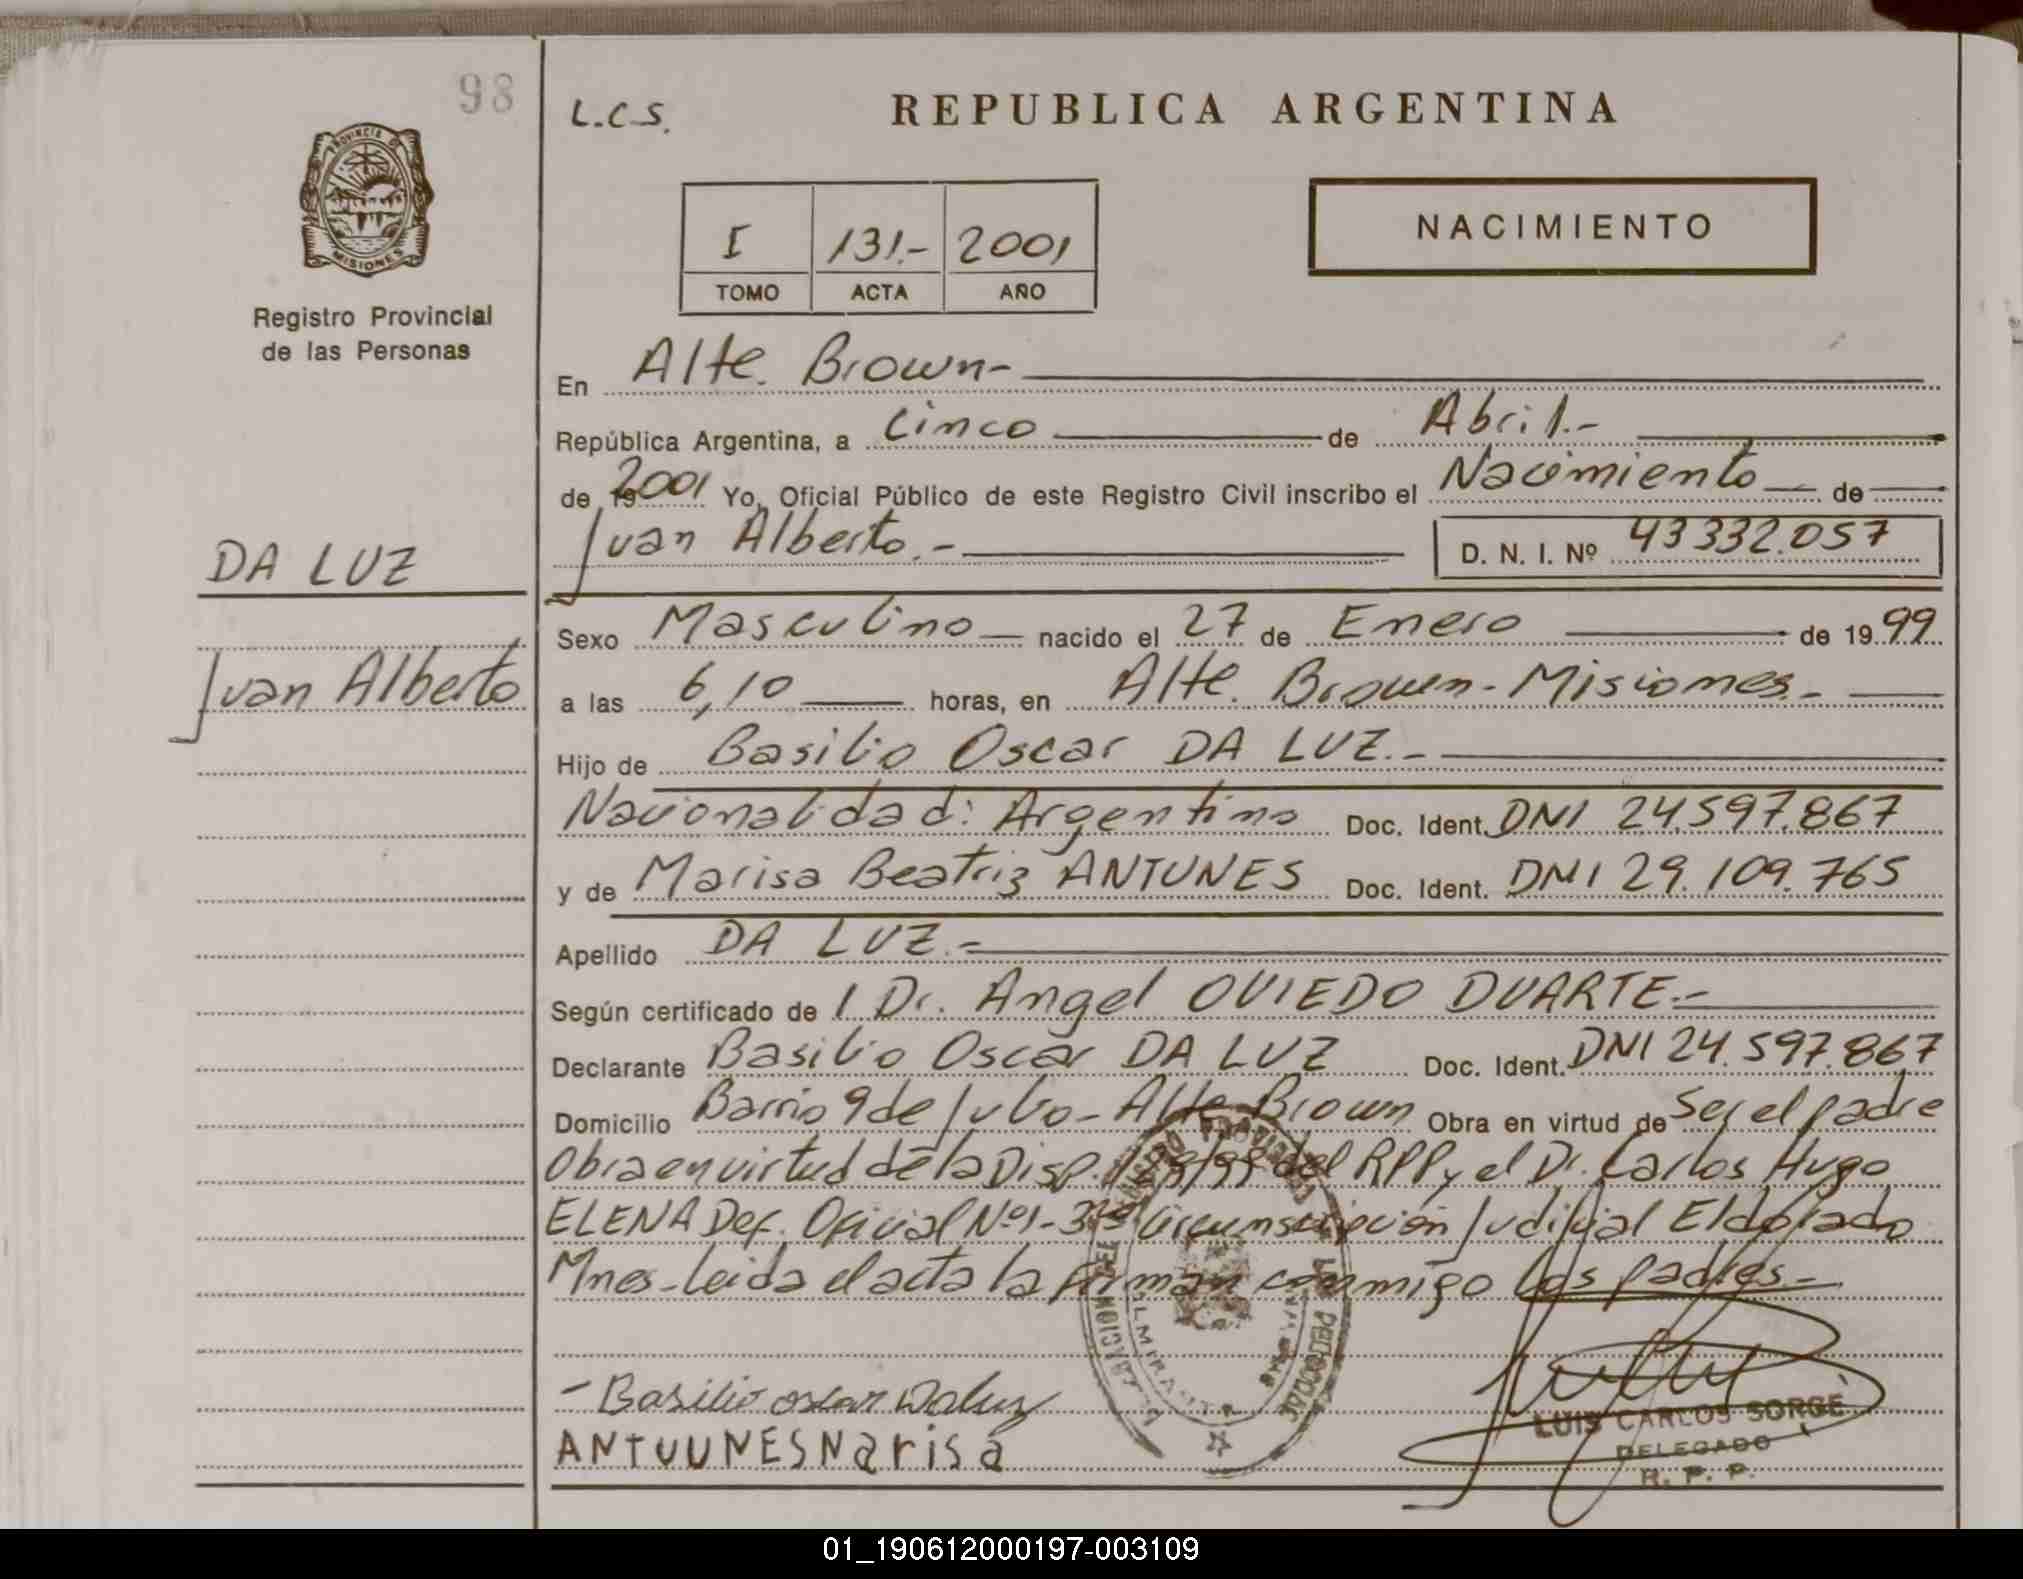 98
L.C.S.
REPUBLICA ARGENTINA
PROVINCIA DE
MISIONES
Registro Provincial
de las Personas
I 131.- 2001
TOMO ACTA AÑO
NACIMIENTO
En Alte. Brown-
República Argentina, a Cinco de Abril.-
de 2001 Yo, Oficial Público de este Registro Civil inscribo el Nacimiento de
Juan Alberto.- D. N. I. Nº 43332.057
DA LUZ
Juan Alberto
Sexo Masculino nacido el 27 de Enero de 1999
a las 6,10 horas, en Alte. Brown-Misiones.-
Hijo de Basilio Oscar DA LUZ.-
Nacionalidad: Argentino Doc. Ident. DNI 24.597.867
y de Marisa Beatriz ANTUNES Doc. Ident. DNI 29.109.765
Apellido DA LUZ.-
Según certificado de l Dr. Angel OVIEDO DUARTE.-
Declarante Basilio Oscar DA LUZ Doc. Ident. DNI 24.597.867
Domicilio Barrio 9 de Julio- Alte Brown Obra en virtud de Ser el padre
Obra en virtud de la Disp. del RPP y el Dr. Carlos Hugo
ELENA Def. Oficial Nº1- 3ra Circunscripción Judicial Eldorado
Mnes-Leida el acta la firman conmigo los padres-
-Basilio oscar Daluz
ANTUUNES Narisa
LUIS CARLOS SORGE
DELEGADO
R. P. P.
01_190612000197-003109